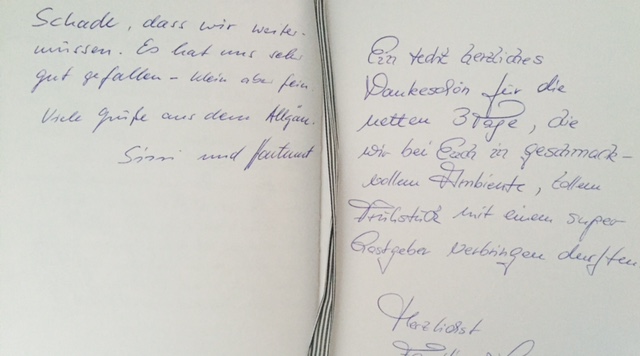 Schade, dass wir weiter-
müssen. Es hat uns sehr
gut gefallen – klein aber fein.
Viele Grüße aus dem Allgäu.
Sissi und Hartmut
Ein recht herzliches
Dankeschön für die
netten 3 Tage, die
wir bei Euch in geschmack-
vollem Ambiente, tollem
Frühstück mit einem super
Gastgeber verbringen durften
Herzlichst